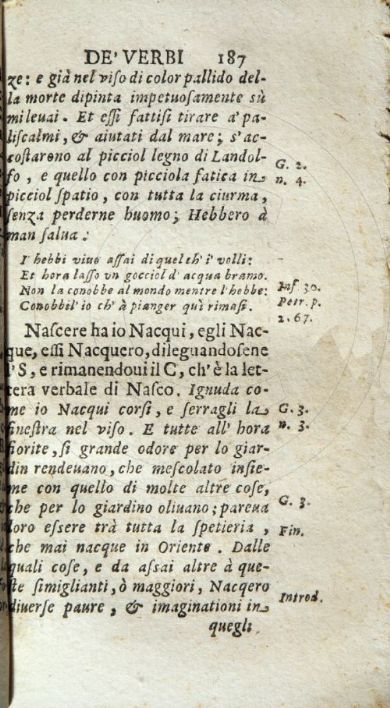 DE' VERBI 187
ze: e già nel viso di color pallido del-
la morte dipinta impetuosamente sù
mi leuai. Et essi fattisi tirare a' pa-
liscalmi, & aiutati dal mare; s'ac-
costarono al picciol legno di Landol-
fo, e quello con picciola fatica in
picciol spatio, con tutta la ciurma,
senza perderne huomo; Hebbero à
man salua:
G. 2.
n. 4.
I' hebbi viuo assai di quel ch' i' volli:
Et hora lasso vn gocciol d' acqua bramo.
Non la conobbe al mondo mentre l'hebbe:
Conobbel' io ch' à pianger quì rimasi.
Inf. 30.
Petr. p.
2. 67.
Nascere ha io Nacqui, egli Nac-
que, essi Nacquero, dileguandosene
l'S, e rimanendoui il C, ch'è la let-
tera verbale di Nasco. Ignuda co-
me io Nacqui corsi, e serragli la
finestra nel viso. E tutte all' hora
fiorite, sì grande odore per lo giar-
din rendeuano, che mescolato insie-
me con quello di molte altre cose,
che per lo giardino oliuano; pareua
loro essere trà tutta la spetieria,
che mai nacque in Oriente. Dalle
quali cose, e da assai altre à que-
ste simiglianti, ò maggiori, Nacqero
diuerse paure, & imaginationi in
quegli
G. 3.
n. 3.
G. 3.
Fin.
Introd.